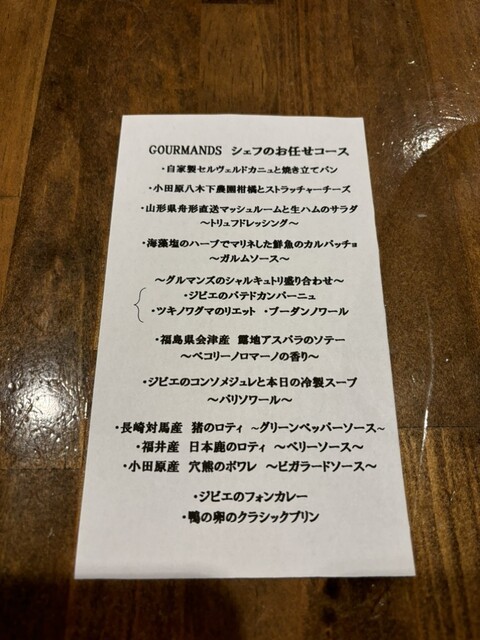 GOURMANDS シェフのお任せコース
・自家製セルヴェルドカニュと焼き立てパン
・小田原八木下農園柑橘とストラッチャーチーズ
・山形県舟形直送マッシュルームと生ハムのサラダ
～トリュフドレッシング～
・海藻塩のハーブでマリネした鮮魚のカルパッチョ
～ガルムソース～
～グルマンズのシャルキュトリ盛り合わせ～
・ジビエのパテドカンパーニュ
・ツキノワグマのリエット ・ブーダンノワール
・福島県会津産 露地アスパラのソテー
～ペコリーノロマーノの香り～
・ジビエのコンソメジュレと本日の冷製スープ
～パリソワール～
・長崎対馬産 猪のロティ ～グリーンペッパーソース～
・福井産 日本鹿のロティ ～ベリーソース～
・小田原産 穴熊のポワレ ～ビガラードソース～
・ジビエのフォンカレー
・鴨の卵のクラシックプリン